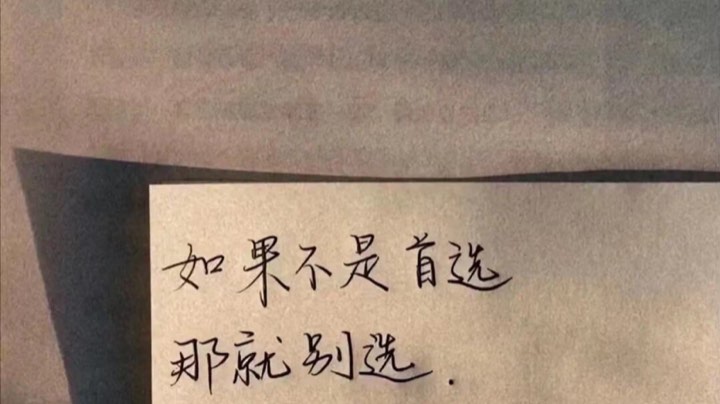 如果不是首选
那就别选.